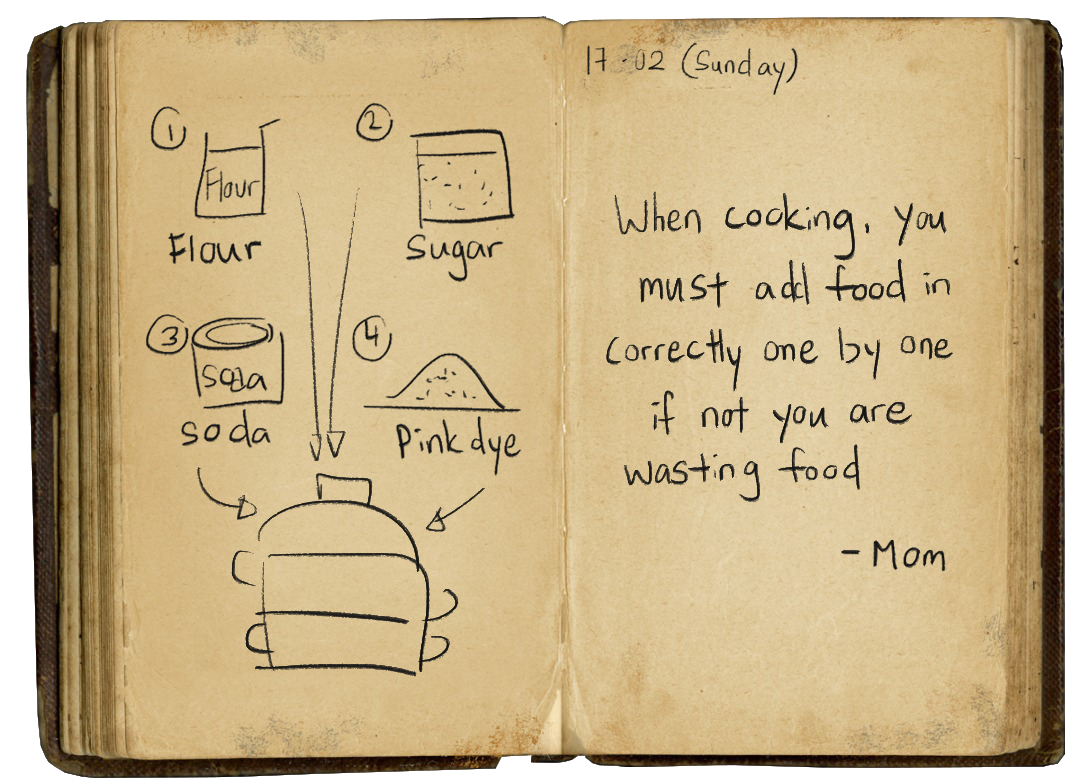 1
Flour
Flour
2
Sugar
3
Soda
soda
4
Pink dye
17-02 (Sunday)
When cooking, you
must add food in
correctly one by one
if not you are
wasting food
- Mom